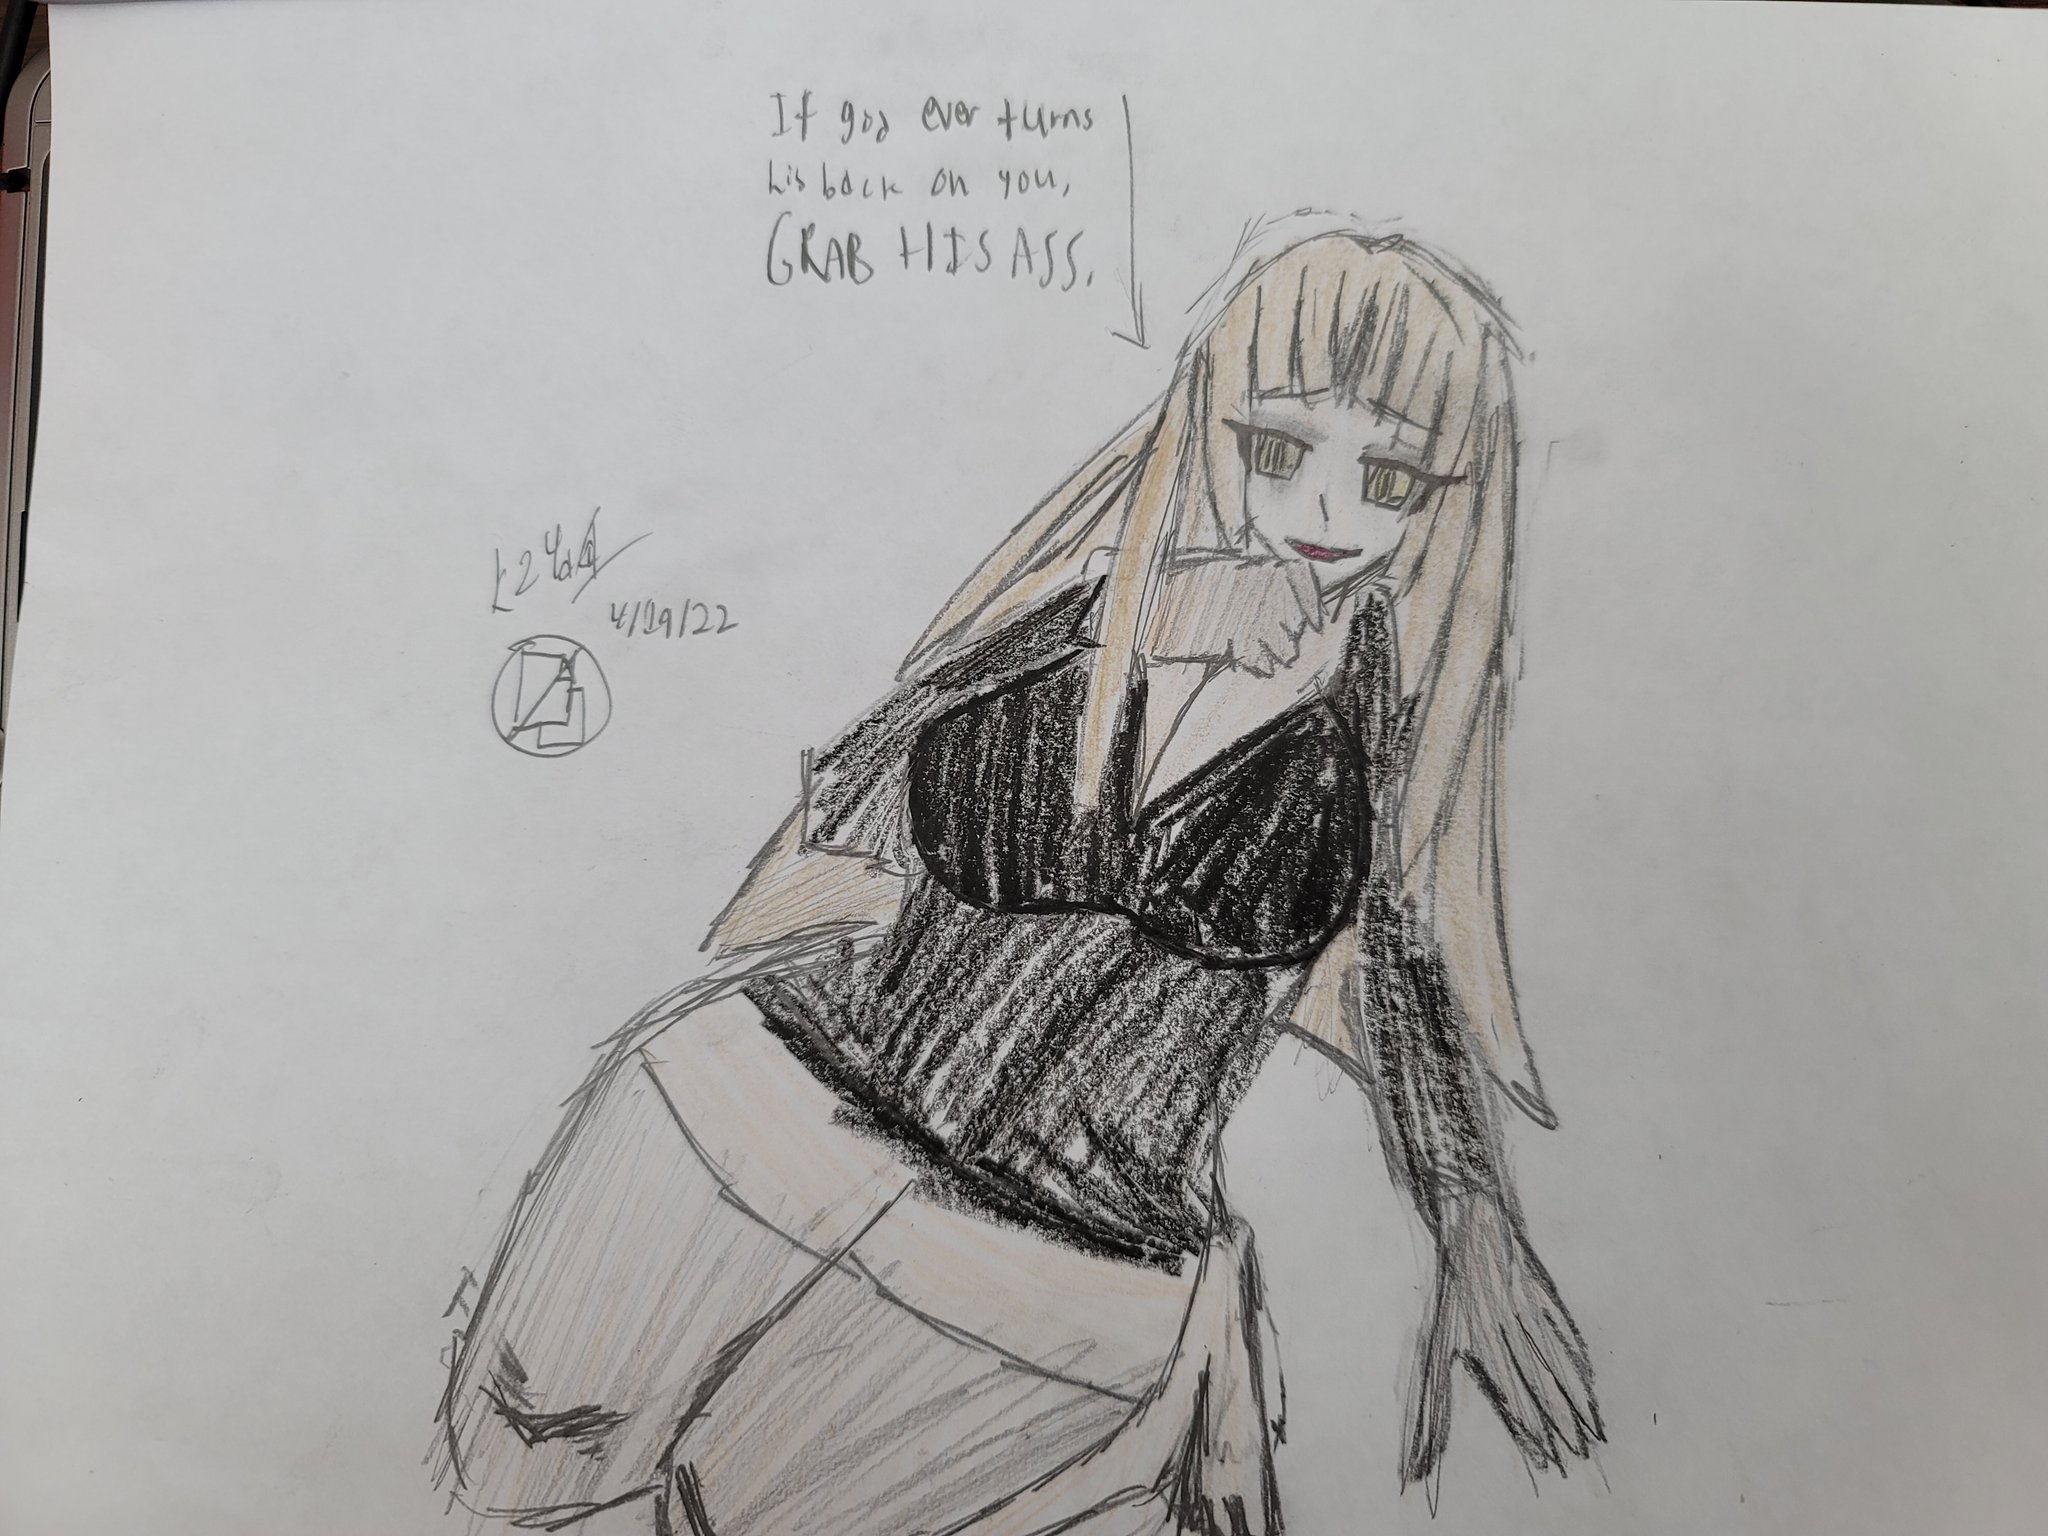 If god ever turns
his back on you,
GRAB HIS ASS.
4/19/22